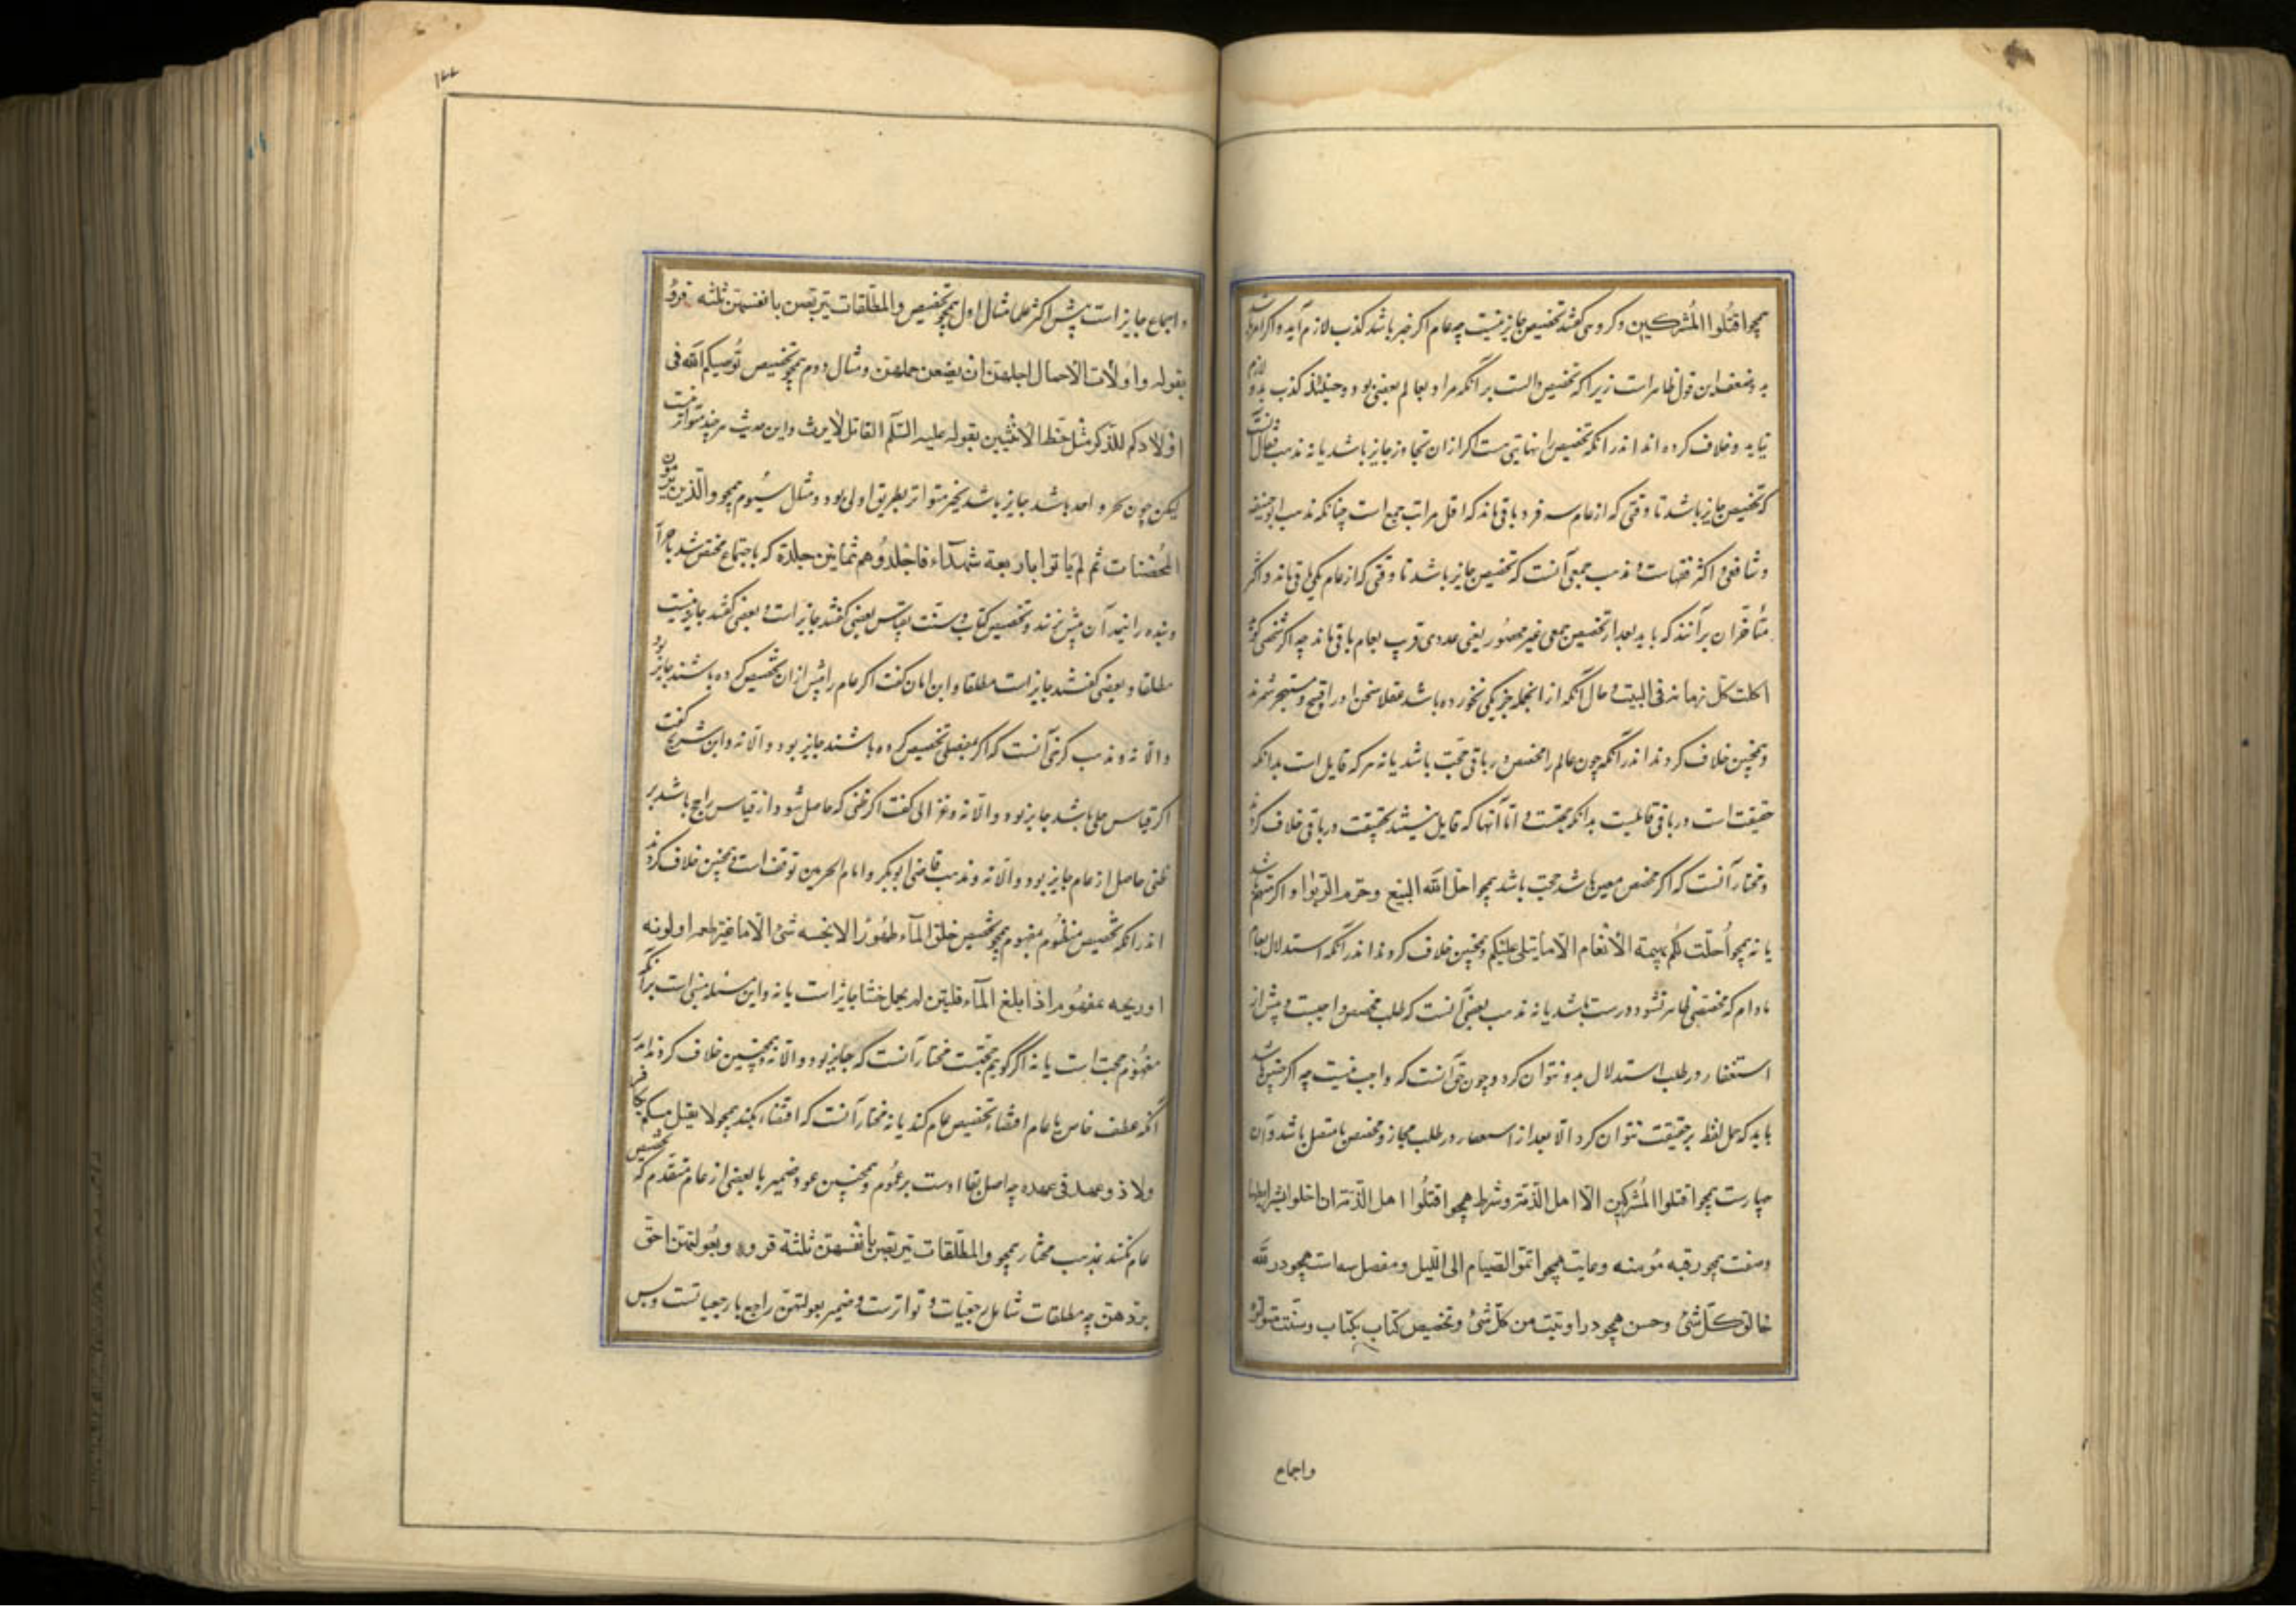 همچو اقتُلوا المُشركين وکروهی کفتند تخصیص جایز نیست چه عام اکر خبر باشد کذب لازم آید و اکر امر باشد
بدو ضعف این قول ظاهر است زیرا که تخصیص دالست بر آنکه مراد بعام بعضی بود و حینئذ کذب بدو لازم
نیاید و خلاف کرده اند اندر آنکه تخصیص را نهایتی هست که از ان تجاوز جایز باشد یا نه مذهب قفال آنست
که تخصیص جایز باشد تا وقتی که از عام سه فرد باقی ماند که اقل مراتب جمع است چنانکه مذهب ابو حنیفه
و شافعی و اکثر فقهاست و مذهب جمعی آنست که تخصیص جایز باشد تا وقتی که از عام یکی باقی ماند و اکثر
متأخران برآنند که باید بعد از تخصیص جمعی غیر محصور یعنی عددی قریب بعام باقی ماند چه اکر شخصی کوید
اکلت کل رمانة فی البیت و حال آنکه از انجمله جز یکی نخورده باشد عقلا سخن او را قبیح و مستهجن شمرند
و همچنین خلاف کردند اندر آنکه چون عام را مخصص در باقی حجّت باشد یا نه هر که قایل است بدانکه
حقیقت است در باقی قایلست بدانکه حجتست و امّا آنها که قایل نیستند بحقیقت در باقی خلاف کردند
و مختار آنست که اکر مخصص معین باشد حجت باشد همچو احلّ الله البیع وحرم الرّبوا و اکر مبهم باشد
یا نه همچو أُحلّت لکُم بهیمة الأنعام الّا ما یتلی علیکم و همچنین خلاف کردند اندر آنکه استدلال بعام
مادام که مخصصی ظاهر نشود درست باشد یا نه مذهب بعضی آنست که طلب مخصص واجبست و پیش از
استقصا در طلب استدلال بدو نتوان کرد و چون حق آنست که واجب نیست چه اکر چنین باشد
باید که حمل لفظ بر حقیقت نتوان کرد الّا بعد از استقصا در طلب مجاز و مخصص یا متصل باشد و آن
چهارست همچو اقتلوا المُشرکین الّا اهل الذّمّة و شرط همچو اقتُلُوا اهل الذّمّة ان اخلوا بشرایطها
و صفت همچو رقبه مُؤمنه و غایت همچو اتمّوا الصّیام الی اللّیل و منفصل همچو در الله
خالق کلّ شئ و حسن همچو در اوتیت من کلّ شئ و تخصیص کتاب بکتاب و سنّت متواتر
واجماع
۱۲۲
و اجماع جایز است پیش اکثر علما مثال اول همچو تخصیص والمطلّقات یتربّصن بانفسهنّ ثلثة قروء
بقوله واولات الاحمال اجلهنّ ان یضعن حملهنّ و مثال دوم همچو تخصیص یُوصیکم الله فی
اولادکم للذّکر مثل حظّ الانثیین بقوله علیه السّلم القاتل لا یرث و این حدیث هر چند متواتر نیست
لیکن چون بخبر واحد باشد جایز باشد بخبر متواتر بطریق اولی بود و مثال سیُوم همچو والّذین یرمون
المُحصنات ثم لم یأتوا باربعة شهدآء فاجلدُوهم ثمانین جلدة که باجماع مختص شد باحرار
و بنده را نیمه آن پیش نزنند و تخصیص کتاب و سنّت بقیاس بعضی کفتند جایز است و بعضی کفتند جایز نیست
مطلقا و بعضی کفتند جایز است مطلقا و ابن ابان کفت اکر عام را پیش از ان تخصیص کرده باشند جایز بود
والّا نه و مذهب کرخی آنست که اکر بمنفصلی تخصیص کرده باشند جایز بود والّا نه و ابن شریح کفت
اکر قیاس جلی باشد جایز بود والّا نه و غزالی کفت اکر ظنی که حاصل شود از قیاس راجح باشد بر
ظنی حاصل از عام جایز بود والّا نه و مذهب قاضی ابو بکر و امام الحرمین توقف است و همچنین خلاف کردند
اندر آنکه تخصیص منظُوم بمفهوم همچو تخصیص خلق المآء طهُورًا لا ینجسه شئ الّا ما غیّر طعمه او لونه
او ریحه بمفهُوم اذا بلغ المآء قلّتین لم یحمل خبثا جایز است یا نه و این مسئله مبنی است بر آنکه
مفهُوم حجت است یا نه اکر کویم حجّتست مختار آنست که جایز بود والّا نه و همچنین خلاف کردند اندر
آنکه عطف خاص با عام اقتضاء تخصیص عام کند یا نه مختار آنست که اقتضاء نکند همچو لا یقتل مسلم بکافر
ولا ذو عهد فی عهده چه اصل بقاء اوست بر عمُوم و همچنین عود ضمیر با بعضی از عام متقدم که تخصیص
عام نکند بمذهب مختار همچو والمطلّقات یتربّصن بانفسهنّ ثلثة قروء وبُعولتهنّ احقّ
بردّهنّ چه مطلقات شامل رجعیات و بواینست و ضمیر بعولتهنّ راجع با رجعیاتست و بس